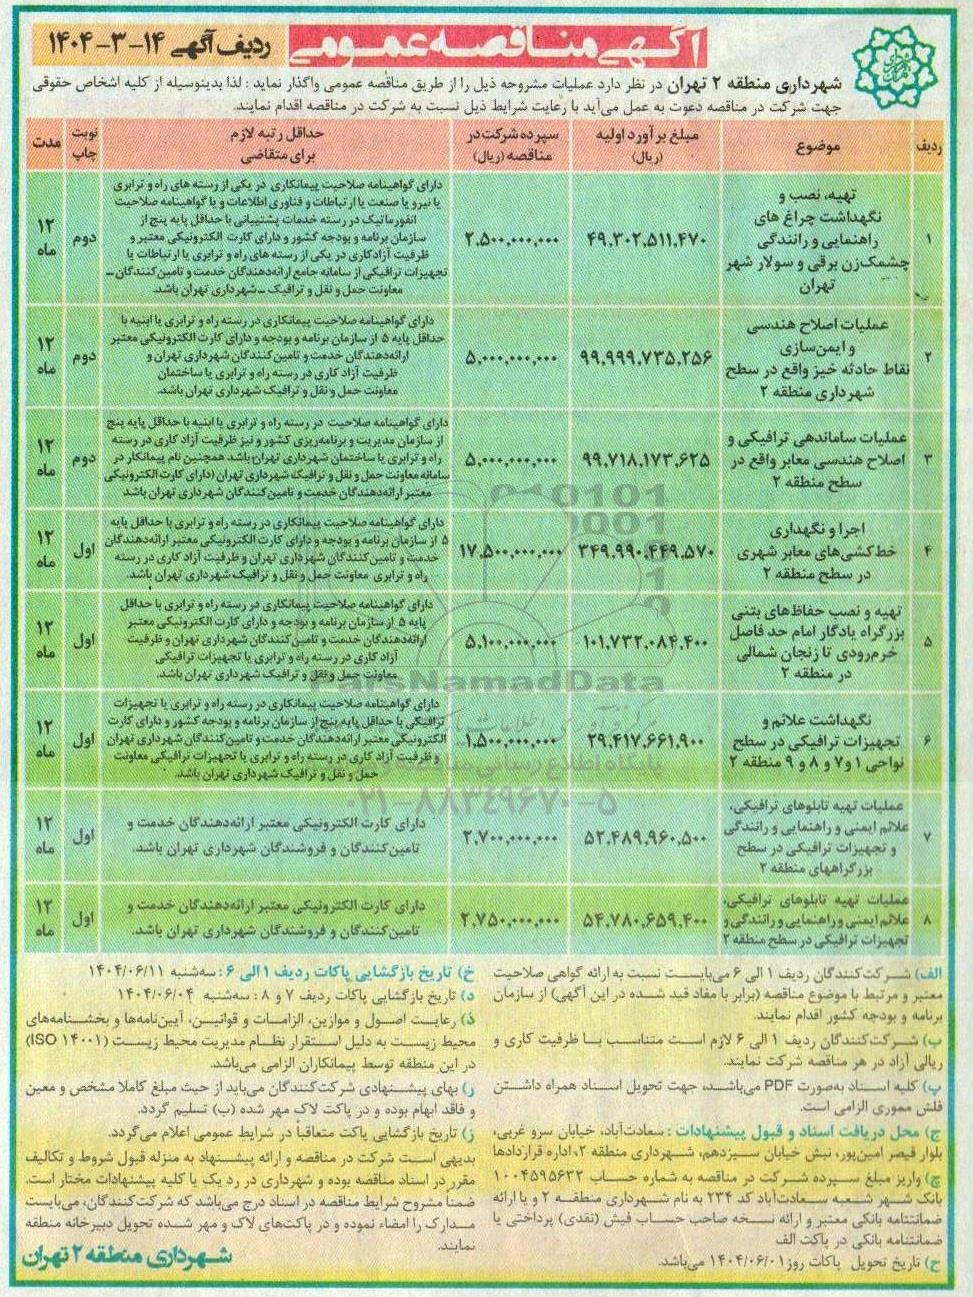 آگهی مناقصه عمومی
ردیف آگهی ۱۴-۳-۱۴۰۴
شهرداری منطقه ۲ تهران در نظر دارد عملیات مشروحه ذیل را از طریق مناقصه عمومی واگذار نماید؛ لذا بدینوسیله از کلیه اشخاص حقوقی
جهت شرکت در مناقصه دعوت به عمل می‌آید با رعایت شرایط ذیل نسبت به شرکت در مناقصه اقدام نمایند.
ردیف
موضوع
مبلغ برآورد اولیه
(ریال)
سپرده شرکت در
مناقصه (ریال)
حداقل رتبه لازم
برای متقاضی
نوبت
چاپ
مدت
۱
تهیه، نصب و
نگهداشت چراغ های
راهنمایی و رانندگی
چشمک‌زن برقی و سولار شهر
تهران
۴۹,۳۰۲,۵۱۱,۴۷۰
۲,۵۰۰,۰۰۰,۰۰۰
دارای گواهینامه صلاحیت پیمانکاری در یکی از رسته های راه و ترابری
یا نیرو یا صنعت یا ارتباطات و فناوری اطلاعات و یا گواهینامه صلاحیت
انفورماتیک در رسته خدمات پشتیبانی با حداقل پایه پنج از
سازمان برنامه و بودجه کشور و دارای کارت الکترونیکی معتبر و
ظرفیت آزاد کاری در یکی از رسته های راه و ترابری یا ارتباطات یا
تجهیزات ترافیکی از سامانه جامع ارائه‌دهندگان خدمت و تامین‌کنندگان -
معاونت حمل و نقل و ترافیک - شهرداری تهران باشد.
دوم
۱۲
ماه
۲
عملیات اصلاح هندسی
و ایمن‌سازی
نقاط حادثه خیز واقع در سطح
شهرداری منطقه ۲
۹۹,۹۹۹,۷۳۵,۲۵۶
۵,۰۰۰,۰۰۰,۰۰۰
دارای گواهینامه صلاحیت پیمانکاری در رسته راه و ترابری یا ابنیه با
حداقل پایه ۵ از سازمان برنامه و بودجه و دارای کارت الکترونیکی معتبر
ارائه‌دهندگان خدمت و تامین‌کنندگان شهرداری تهران و
ظرفیت آزاد کاری در رسته راه و ترابری یا ساختمان
معاونت حمل و نقل و ترافیک شهرداری تهران باشد.
دوم
۱۲
ماه
۳
عملیات ساماندهی ترافیکی و
اصلاح هندسی معابر واقع در
سطح منطقه ۲
۹۹,۷۱۸,۱۷۳,۶۲۵
۵,۰۰۰,۰۰۰,۰۰۰
دارای گواهینامه صلاحیت در رسته راه و ترابری یا ابنیه با حداقل پایه پنج
از سازمان مدیریت و برنامه‌ریزی کشور و نیز ظرفیت آزاد کاری در رسته
راه و ترابری یا ساختمان شهرداری تهران باشد همچنین نام پیمانکار در
سامانه معاونت حمل و نقل و ترافیک شهرداری تهران (دارای کارت الکترونیکی
معتبر ارائه‌دهندگان خدمت و تامین‌کنندگان شهرداری تهران باشد
دوم
۱۲
ماه
۴
اجرا و نگهداری
خط‌کشی‌های معابر شهری
در سطح منطقه ۲
۳۴۹,۹۹۰,۴۴۹,۵۷۰
۱۷,۵۰۰,۰۰۰,۰۰۰
دارای گواهینامه صلاحیت پیمانکاری در رسته راه و ترابری با حداقل پایه
۵ از سازمان برنامه و بودجه و دارای کارت الکترونیکی معتبر ارائه‌دهندگان
خدمت و تامین‌کنندگان شهرداری تهران و ظرفیت آزاد کاری در رسته
راه و ترابری معاونت حمل و نقل و ترافیک شهرداری تهران باشد.
اول
۱۲
ماه
۵
تهیه و نصب حفاظ‌های بتنی
بزرگراه یادگار امام حد فاصل
خرم‌رودی تا زنجان شمالی
در منطقه ۲
۱۰۱,۷۳۲,۰۸۴,۴۰۰
۵,۱۰۰,۰۰۰,۰۰۰
دارای گواهینامه صلاحیت پیمانکاری در رسته راه و ترابری با حداقل
پایه ۵ از سازمان برنامه و بودجه و دارای کارت الکترونیکی معتبر
ارائه‌دهندگان خدمت و تامین‌کنندگان شهرداری تهران و ظرفیت
آزاد کاری در رسته راه و ترابری یا تجهیزات ترافیکی
معاونت حمل و نقل و ترافیک شهرداری تهران باشد.
اول
۱۲
ماه
۶
نگهداشت علائم و
تجهیزات ترافیکی در سطح
نواحی ۱ و ۷ و ۸ و ۹ منطقه ۲
۲۹,۴۱۷,۶۶۱,۹۰۰
۱,۵۰۰,۰۰۰,۰۰۰
دارای گواهینامه صلاحیت پیمانکاری در رسته راه و ترابری یا تجهیزات
ترافیکی با حداقل پایه پنج از سازمان برنامه و بودجه کشور و دارای کارت
الکترونیکی معتبر ارائه‌دهندگان خدمت و تامین‌کنندگان شهرداری تهران
و ظرفیت آزاد کاری در رسته راه و ترابری یا تجهیزات ترافیکی معاونت
حمل و نقل و ترافیک شهرداری تهران باشد.
اول
۱۲
ماه
۷
عملیات تهیه تابلوهای ترافیکی،
علائم ایمنی و راهنمایی و رانندگی
و تجهیزات ترافیکی در سطح
بزرگراههای منطقه ۲
۵۲,۴۸۹,۹۶۰,۵۰۰
۲,۷۰۰,۰۰۰,۰۰۰
دارای کارت الکترونیکی معتبر ارائه‌دهندگان خدمت و
تامین‌کنندگان و فروشندگان شهرداری تهران باشد.
اول
۱۲
ماه
۸
عملیات تهیه تابلوهای ترافیکی،
علائم ایمنی و راهنمایی و رانندگی و
تجهیزات ترافیکی در سطح منطقه ۲
۵۴,۷۸۰,۶۵۹,۴۰۰
۲,۷۵۰,۰۰۰,۰۰۰
دارای کارت الکترونیکی معتبر ارائه‌دهندگان خدمت و
تامین‌کنندگان و فروشندگان شهرداری تهران باشد.
اول
۱۲
ماه
ParsNamadData
پایگاه اطلاع رسانی
۰۲۱-۸۸۳۴۹۶۷۰-۵
الف) شرکت‌کنندگان ردیف ۱ الی ۶ می‌بایست نسبت به ارائه گواهی صلاحیت
معتبر و مرتبط با موضوع مناقصه (برابر با مفاد قید شده در این آگهی) از سازمان
برنامه و بودجه کشور اقدام نمایند.
ب) شرکت‌کنندگان ردیف ۱ الی ۶ لازم است متناسب با ظرفیت کاری و
ریالی آزاد در هر مناقصه شرکت نمایند.
پ) کلیه اسناد به‌صورت PDF می‌باشد، جهت تحویل اسناد همراه داشتن
فلش مموری الزامی است.
ج) محل دریافت اسناد و قبول پیشنهادات : سعادت‌آباد، خیابان سرو غربی،
بلوار قیصر امین‌پور، نبش خیابان سیزدهم، شهرداری منطقه ۲، اداره قراردادها
چ) واریز مبلغ سپرده شرکت در مناقصه به شماره حساب ۱۰۰۴۵۹۵۶۳۲
بانک شهر شعبه سعادت‌آباد کد ۲۳۴ به نام شهرداری منطقه ۲ و یا ارائه
ضمانتنامه بانکی معتبر و ارائه نسخه صاحب حساب فیش (نقدی) پرداختی یا
ضمانتنامه بانکی در پاکت الف
ح) تاریخ تحویل پاکات روز ۱۴۰۴/۰۶/۰۱ می‌باشد.
خ) تاریخ بازگشایی پاکات ردیف ۱ الی ۶ : سه‌شنبه ۱۴۰۴/۰۶/۱۱
د) تاریخ بازگشایی پاکات ردیف ۷ و ۸ : سه‌شنبه ۱۴۰۴/۰۶/۰۴
ذ) رعایت اصول و موازین، الزامات و قوانین، آیین‌نامه‌ها و بخشنامه‌های
محیط زیست به دلیل استقرار نظام مدیریت محیط زیست (ISO ۱۴۰۰۱)
در این منطقه توسط پیمانکاران الزامی می‌باشد.
ر) بهای پیشنهادی شرکت‌کنندگان می‌باید از حیث مبلغ کاملا مشخص و معین
و فاقد ابهام بوده و در پاکت لاک مهر شده (ب) تسلیم گردد.
ز) تاریخ بازگشایی پاکت متعاقباً در شرایط عمومی اعلام می‌گردد.
بدیهی است شرکت در مناقصه و ارائه پیشنهاد به منزله قبول شروط و تکالیف
مقرر در اسناد مناقصه بوده و شهرداری در رد یک یا کلیه پیشنهادات مختار است.
ضمنا مشروح شرایط مناقصه در اسناد درج می‌باشد که شرکت‌کنندگان، می‌بایست
مدارک را امضاء نموده و در پاکت‌های لاک و مهر شده تحویل دبیرخانه منطقه
نمایند.
شهرداری منطقه ۲ تهران